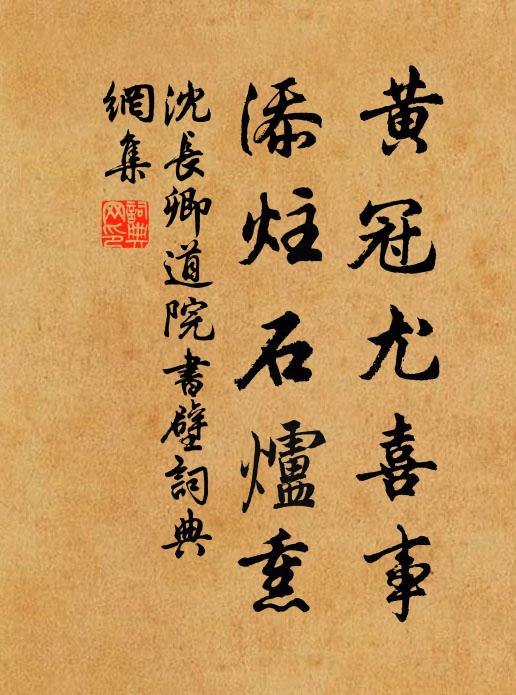 黄冠尤喜事
添炷石爐熏
沈長卿道院書壁詞典
網集
詞典網印